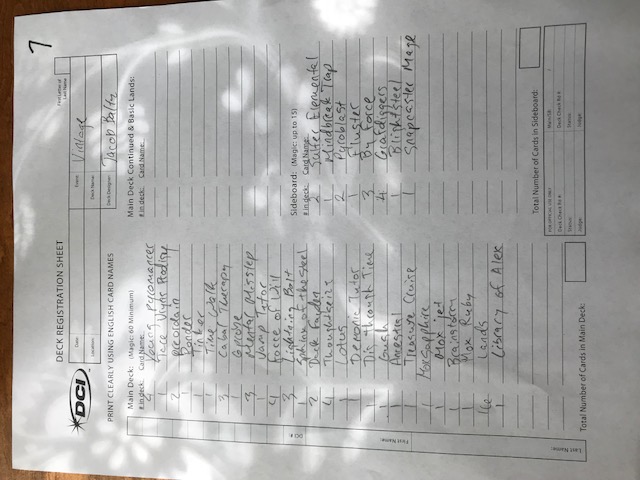 7
DECK REGISTRATION SHEET
First Letter of
Last Name
DCI
Date:
Event: Vintage
Location:
Deck Name:
Deck Designer: Jacob Baltz
PRINT CLEARLY USING ENGLISH CARD NAMES
Main Deck: (Magic: 60 Minimum)
# in deck: Card Name:
4 Young pyromancer
1 Jace Vryns Prodigy
2 preordain
1 Ponder
1 Tinker
1 Time Walk
3 Cabal Therapy
1 Gprobe
3 Mental Misstep
1 Vamp Tutor
4 Force of Will
3 Lightning Bolt
1 Sphinx of the steel
2 Dack Fayden
4 Thoughtseize
1 Lotus
1 Demonic Tutor
1 Dig through Time
1 Gush
1 Ancestral
1 Treasure Cruise
1 Mox Sapphire
1 Mox jet
1 Brainstorm
1 Mox Ruby
Lands
1 Library of Alex
Total Number of Cards in Main Deck:
Main Deck Continued & Basic Lands:
# in deck: Card Name:
Sideboard: (Magic: up to 15)
# in deck: Card Name:
2 Sulfer Elemental
1 Mindbreak Trap
2 Pyroblast
1 Fluster
3 By Force
4 Grafdiggers
1 Blightsteel
1 Snapcaster Mage
Total Number of Cards in Sideboard:
FOR OFFICIAL USE ONLY
Main/SB: /
Deck Check Rd #:
Deck Check Rd #:
Status:
Status:
Judge:
Judge:
DCI #:
First Name:
Last Name: